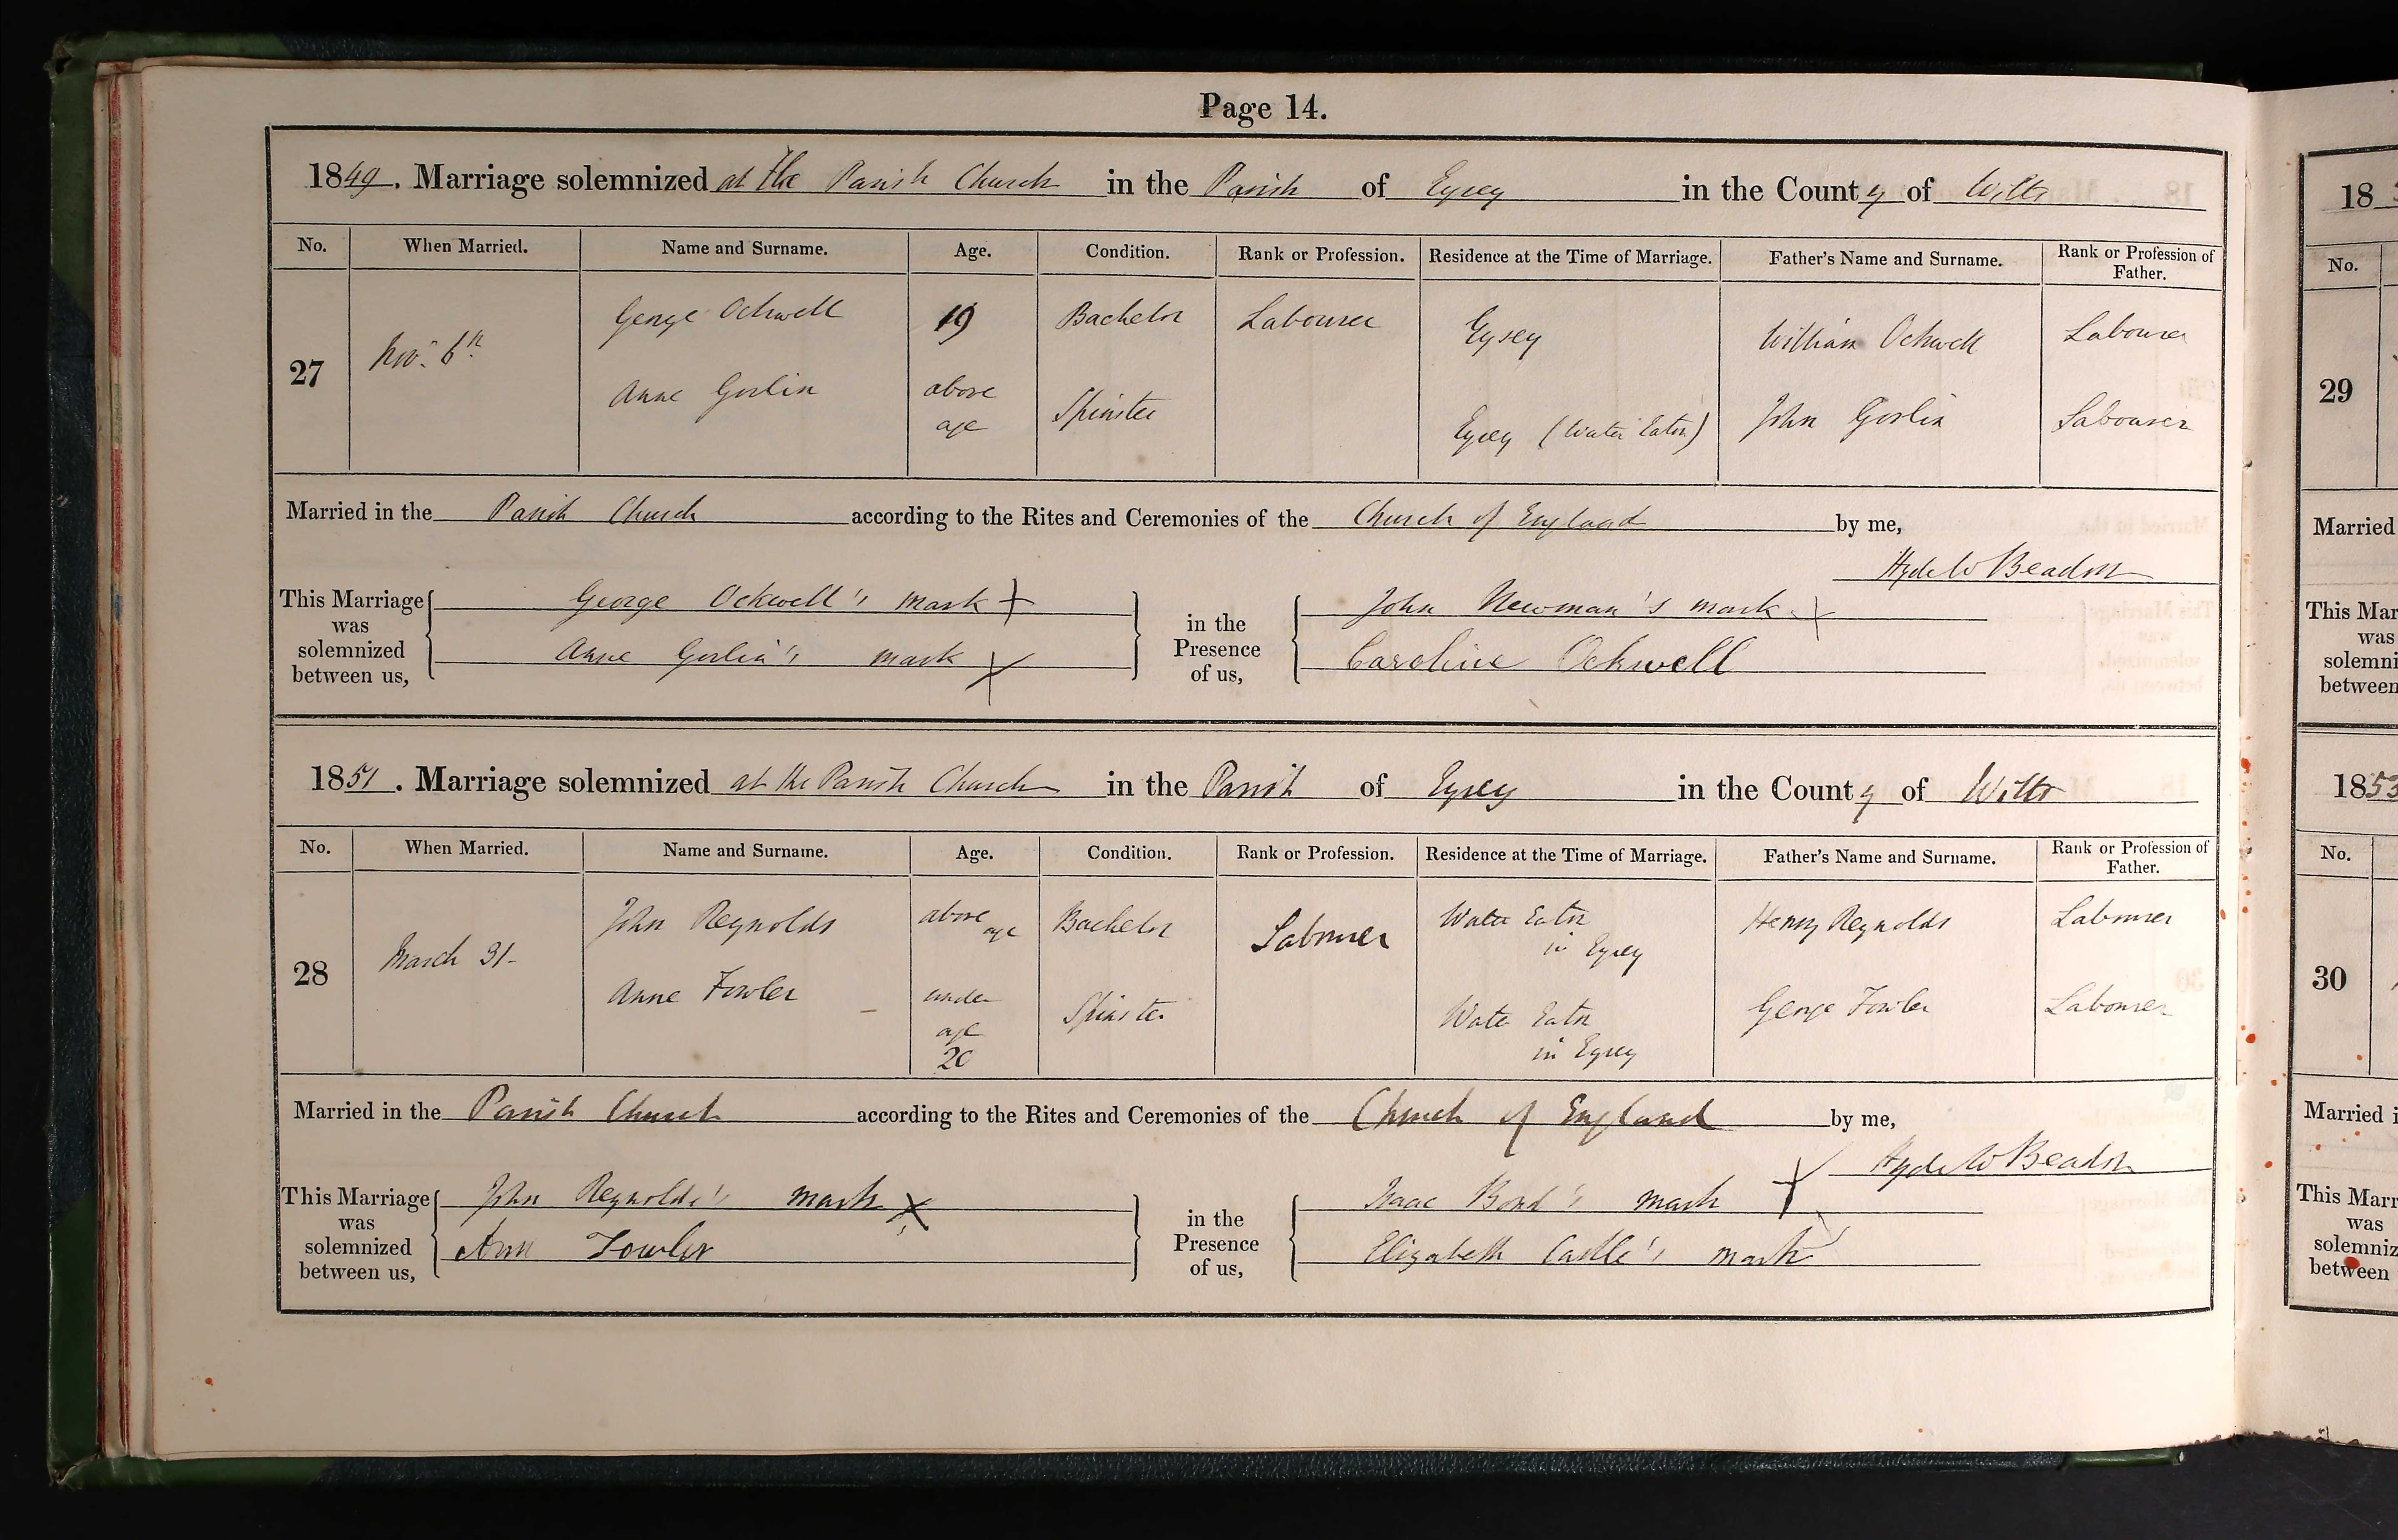 Page 14.
1849. Marriage solemnized at the Parish Church in the Parish of Eysey in the County of Wilts
No. When Married. Name and Surname. Age. Condition. Rank or Profession. Residence at the Time of Marriage. Father's Name and Surname. Rank or Profession of Father.
27 Novr. 6th George Ockwell 19 Bachelor Labourer Eysey William Ockwell Labourer
Anne Goslin above age Spinster Eysey (Water Eaton) John Goslin Labourer
Married in the Parish Church according to the Rites and Ceremonies of the Church of England by me,
Hyde W Beadon
This Marriage was solemnized between us, George Ockwell's mark X in the Presence of us, John Newman's mark X
Anne Goslin's mark X Caroline Ockwell
1851. Marriage solemnized at the Parish Church in the Parish of Eysey in the County of Wilts
No. When Married. Name and Surname. Age. Condition. Rank or Profession. Residence at the Time of Marriage. Father's Name and Surname. Rank or Profession of Father.
28 March 31- John Reynolds above age Bachelor Labourer Water Eaton in Eysey Henry Reynolds Labourer
Anne Fowler under age 20 Spinster Water Eaton in Eysey George Fowler Labourer
Married in the Parish Church according to the Rites and Ceremonies of the Church of England by me,
Hyde W Beadon
This Marriage was solemnized between us, John Reynolds's mark X in the Presence of us, Isaac Bond's mark X
Ann Fowler Elizabeth Castle's mark X
18
No.
29
Married
This Mar
was
solemni
between
1853
No.
30
Married i
This Marr
was
solemniz
between